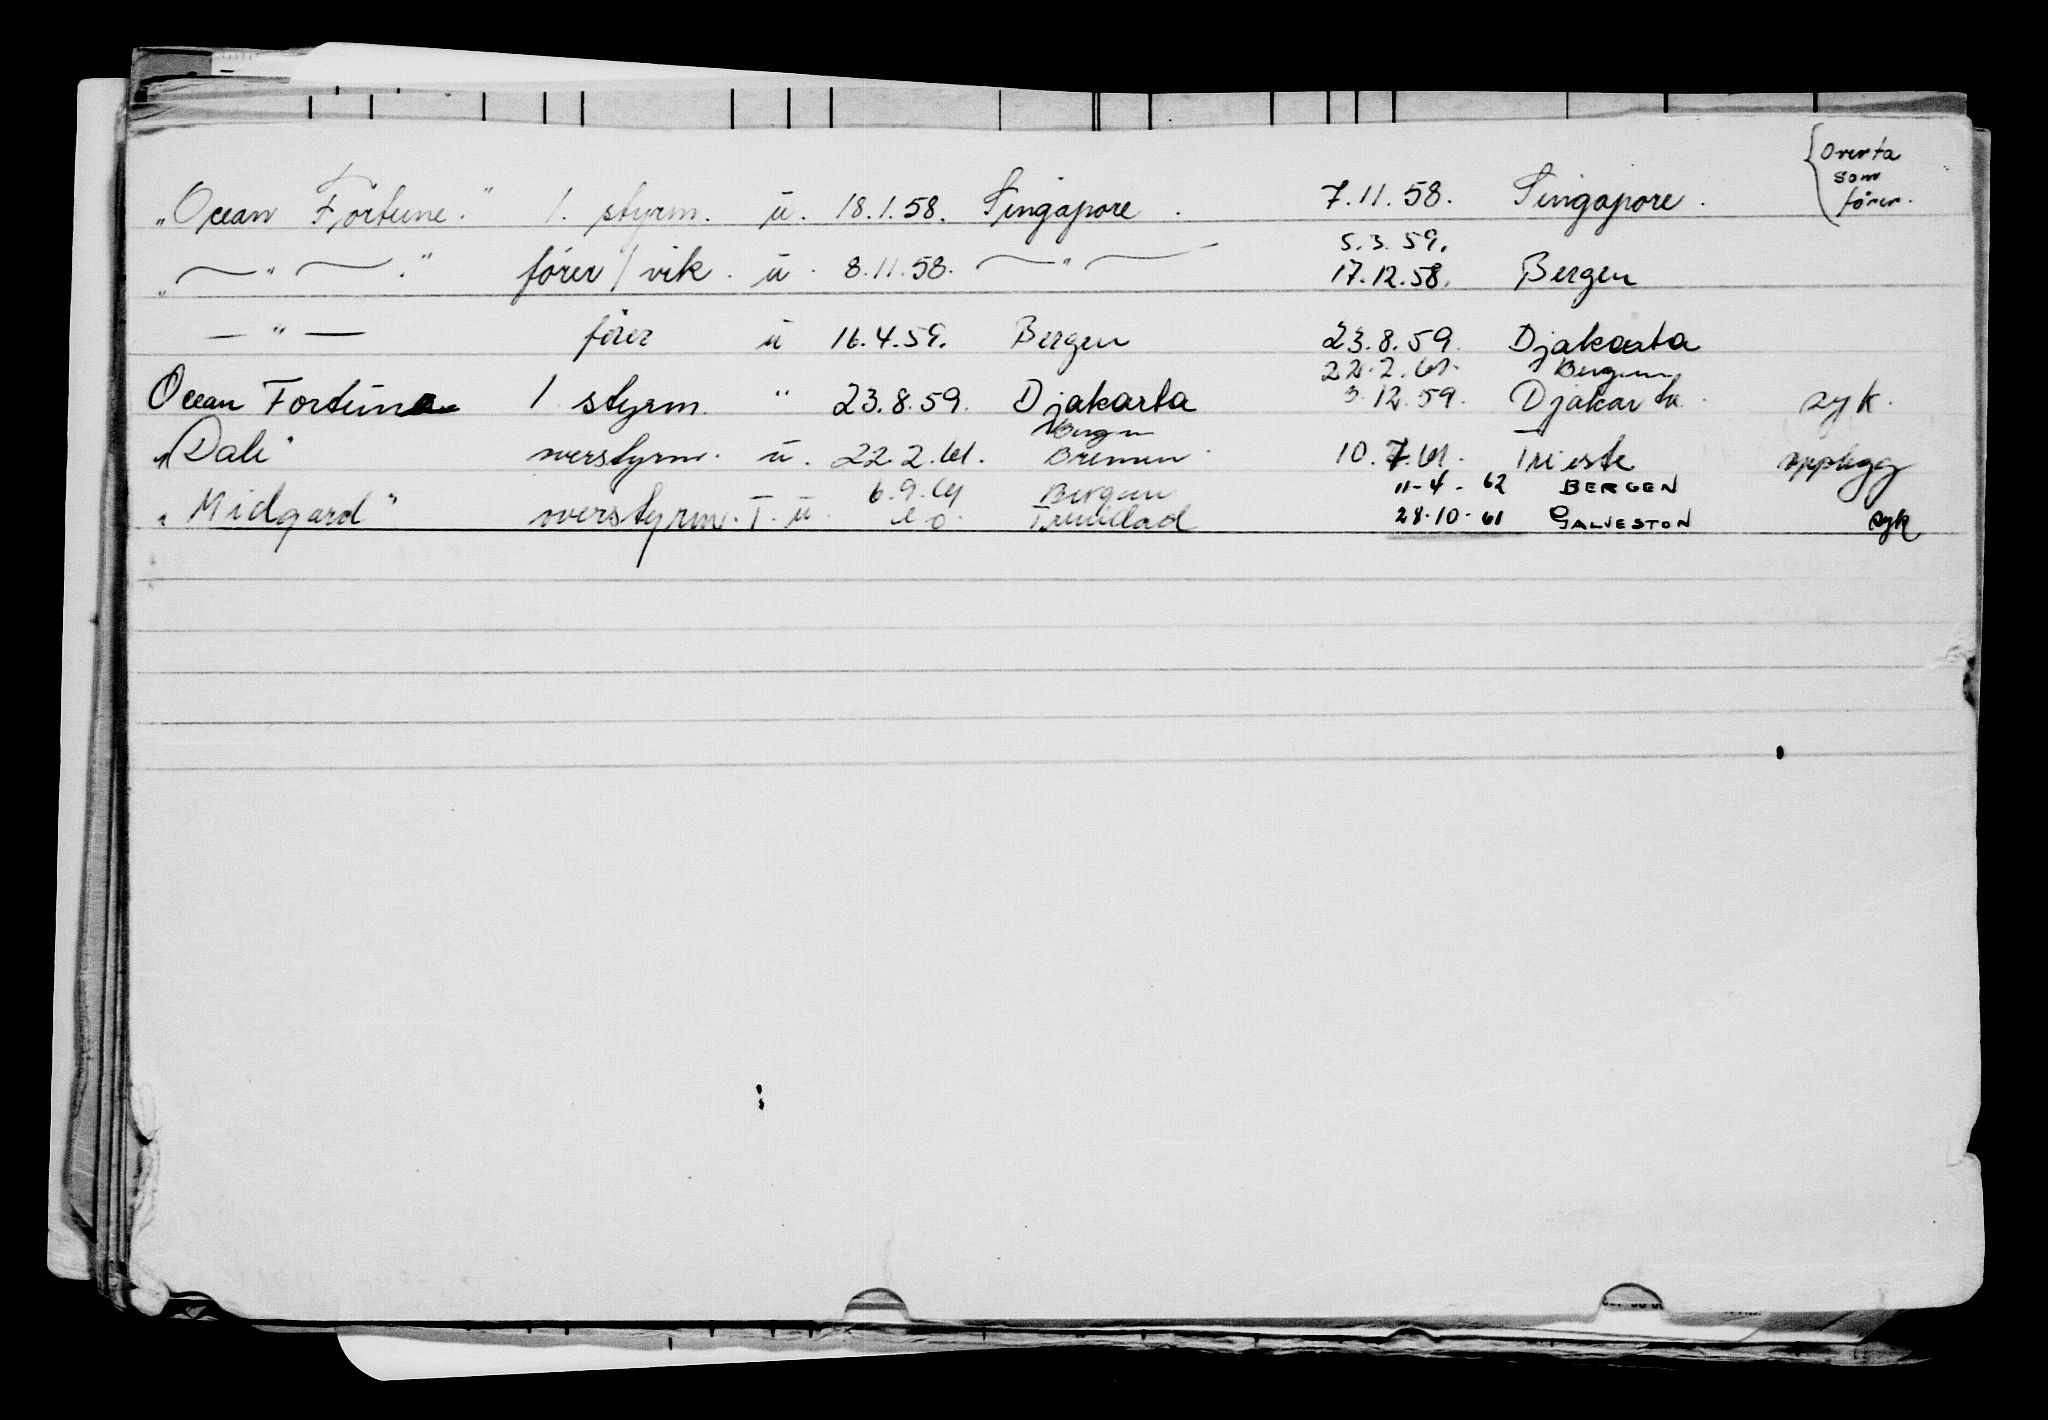 { overta
som
fører.
„Ocean Fortune." 1. styrm. u. 18.1.58. Singapore. 7.11.58. Singapore.
5.3.59.
„—"—." fører/vik. u. 8.11.58. —"— 17.12.58. Bergen
—"— fører u 16.4.59. Bergen 23.8.59. Djakarta
22.2.61. Bergen
Ocean Fortune 1 styrm. " 23.8.59. Djakarta 3.12.59. Djakarta. syk.
Bergen
„Dali" overstyrm. u. 22.2.61. Bremen. 10.7.61. Trieste opplegg
6.9.61 Bergen 11-4-62 BERGEN
„Midgard" overstyrm. T. u. Trinidad 28-10-61 GALVESTON syk